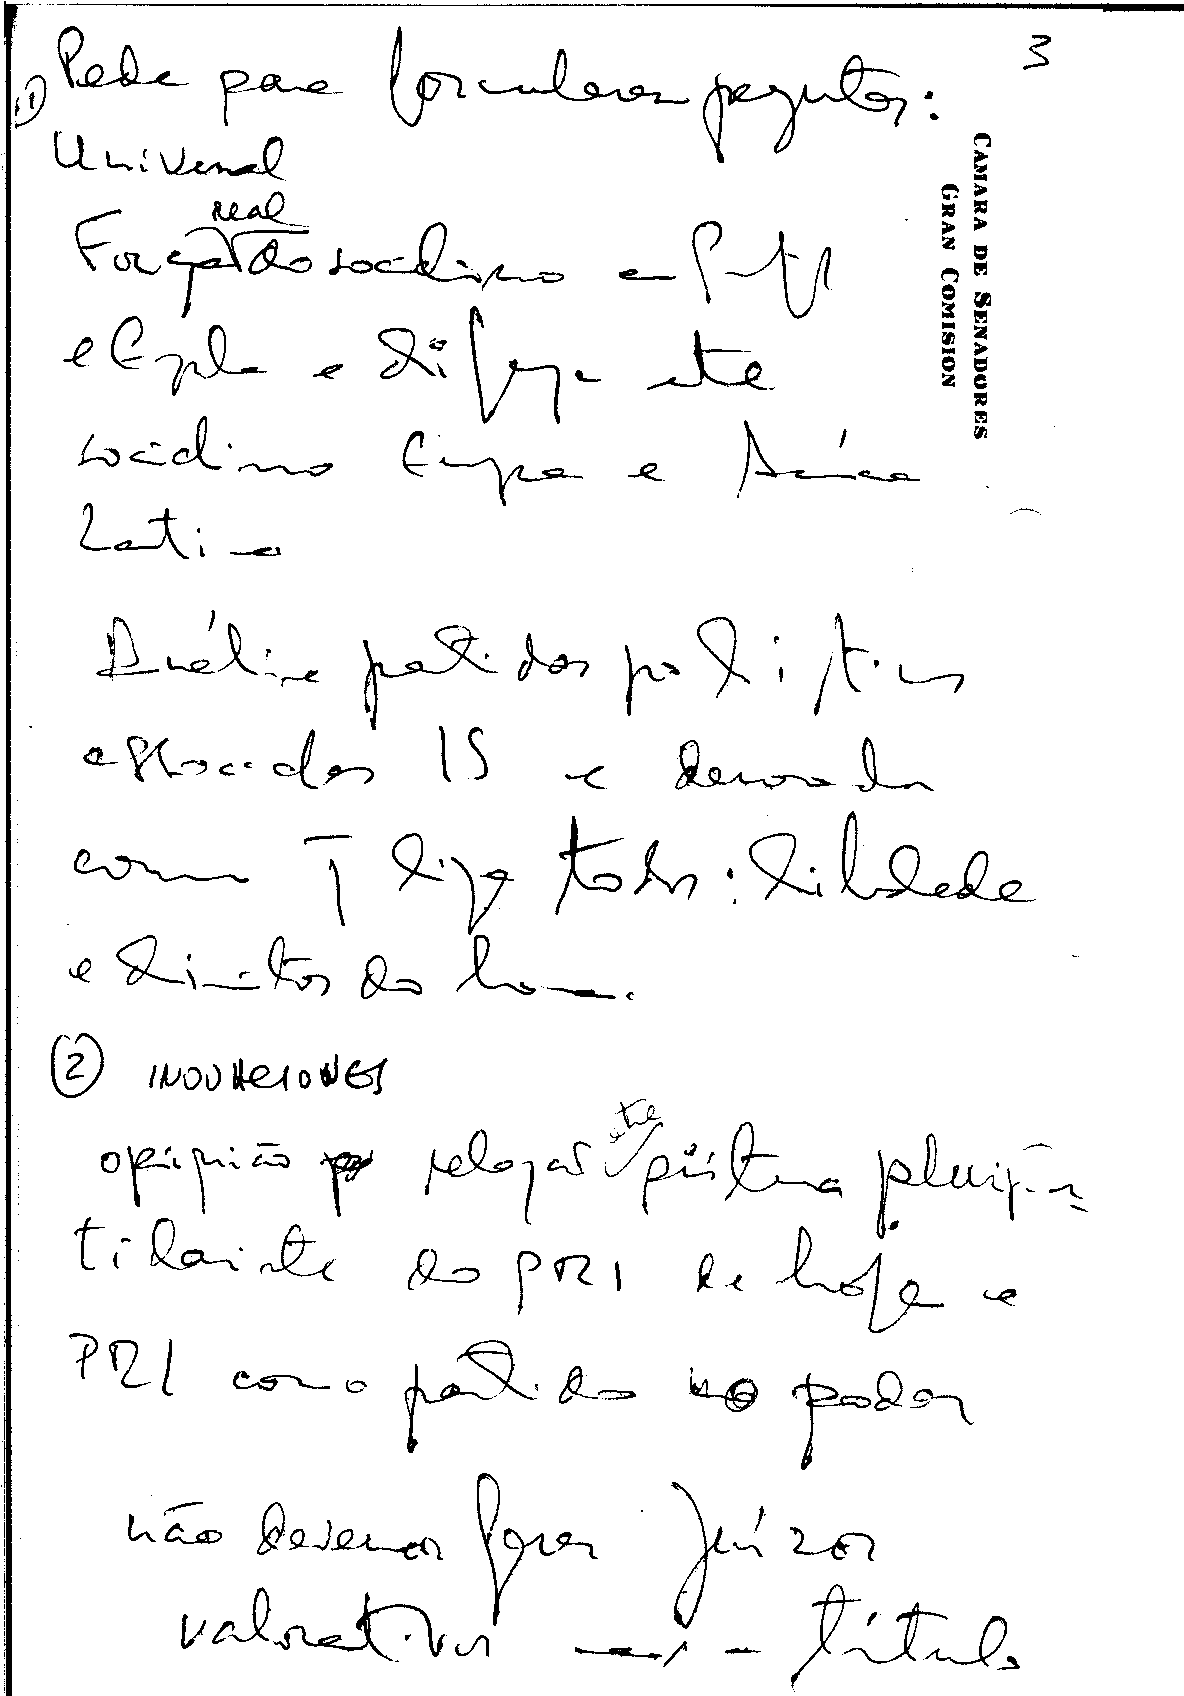 3
CAMARA DE SENADORES
GRAN COMISION
1) Pede para formularem perguntas:
Universal
real
Força do socialismo em Portugal
e Espanha e diferença entre
socialismo Europa e América
Latina
Análise partidos políticos
associados IS e
como liga todos: liberdade
e direitos do homem.
2 INOVACIONES
opinião relações entre sistema pluripar
tidarista do PRI de hoje e
PRI como partido no poder
não devemos fazer juízos
valorativos título